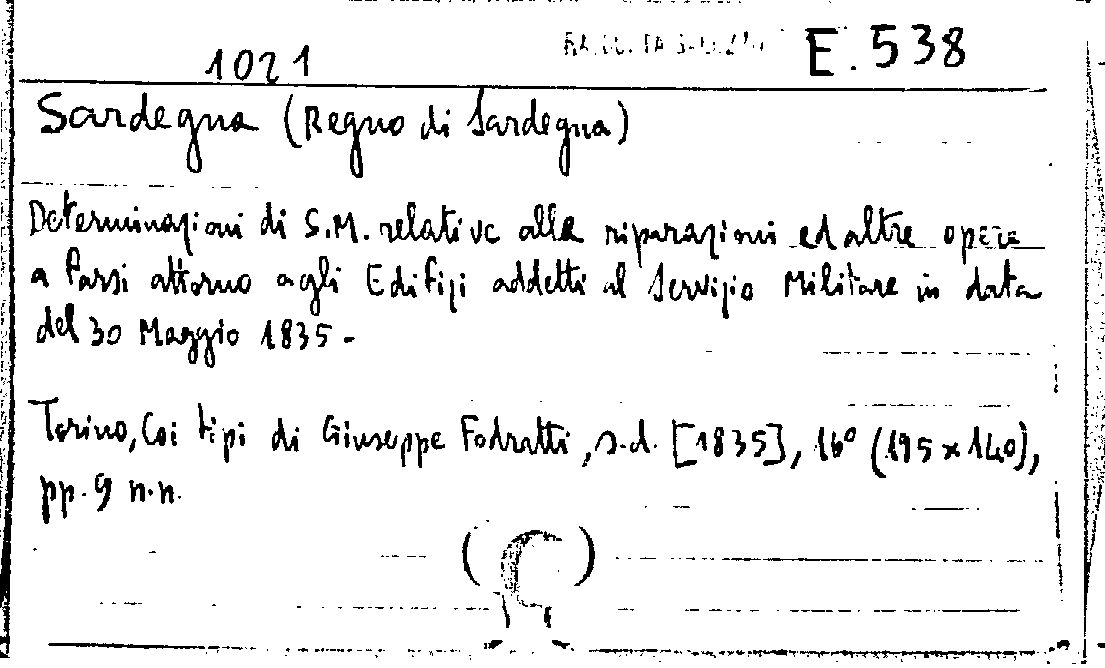 1021
E. 538
Sardegna (Regno di Sardegna)
Determinazioni di S.M. relative alle riparazioni ed altre opere
a farsi attorno agli Edifizi addetti al Servizio Militare in data
del 30 Maggio 1835 -
Torino, Coi tipi di Giuseppe Fodratti, s.d. [1835], 16° (195 x 140),
pp. 9 n.n.